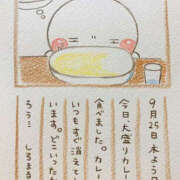 9月25日 木よう
今日、大盛りカレー
食べました。カレー
いつもすぐ消えてし
います。どこいったん
ろう… しろまる